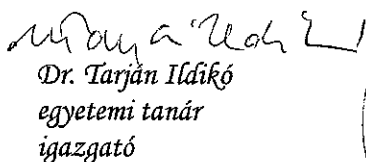 Dr. Tarján Ildikó
egyetemi tanár
igazgató